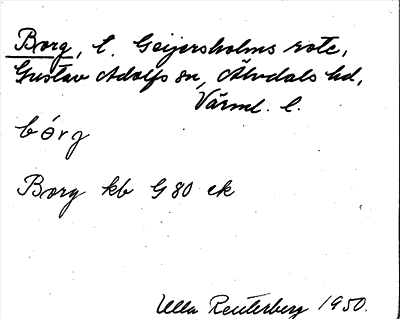 Borg, l. Geijersholms rote,
Gustav Adolfs sn, Älvdals hd,
Värml. l.
bórg
Borg kb G 80 ek
Ulla Reuterberg 1950.